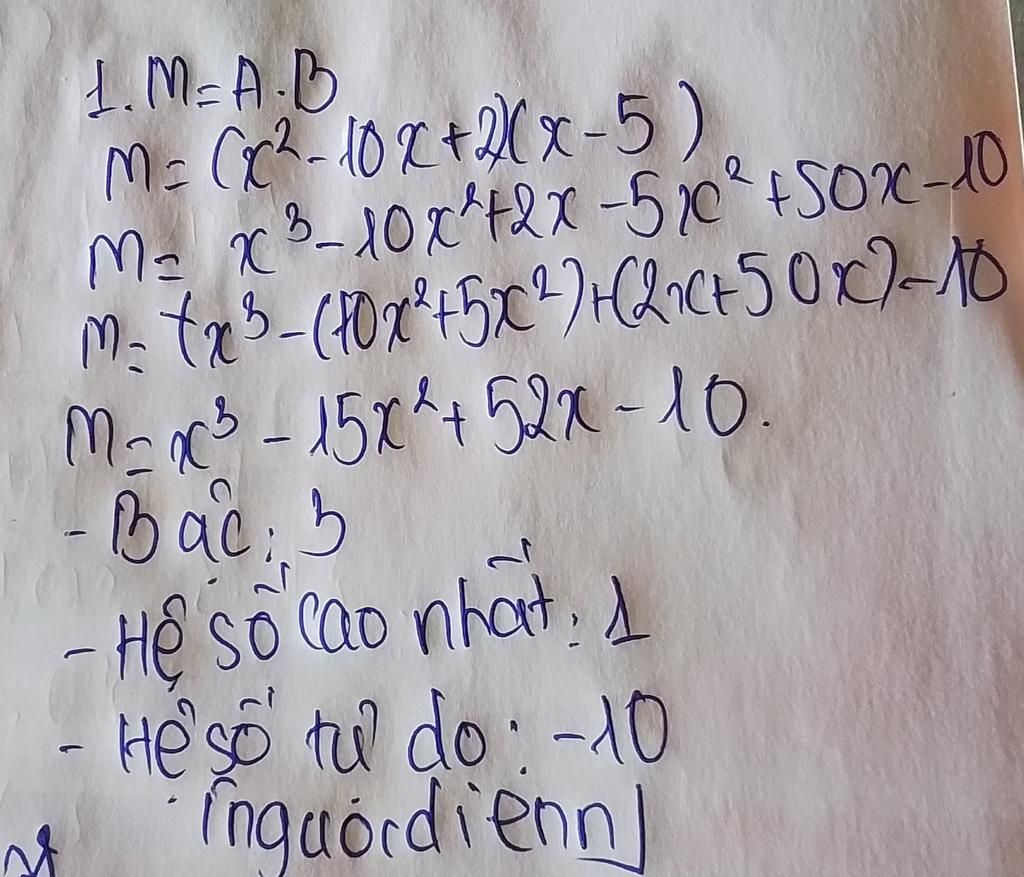 1. M = A.B
M = (x² - 10x + 2)(x - 5)
M = x³ - 10x² + 2x - 5x² + 50x - 10
M = x³ - (10x² + 5x²) + (2x + 50x) - 10
M = x³ - 15x² + 52x - 10.
- Bậc: 3
- Hệ số cao nhất: 1
- Hệ số tự do: -10